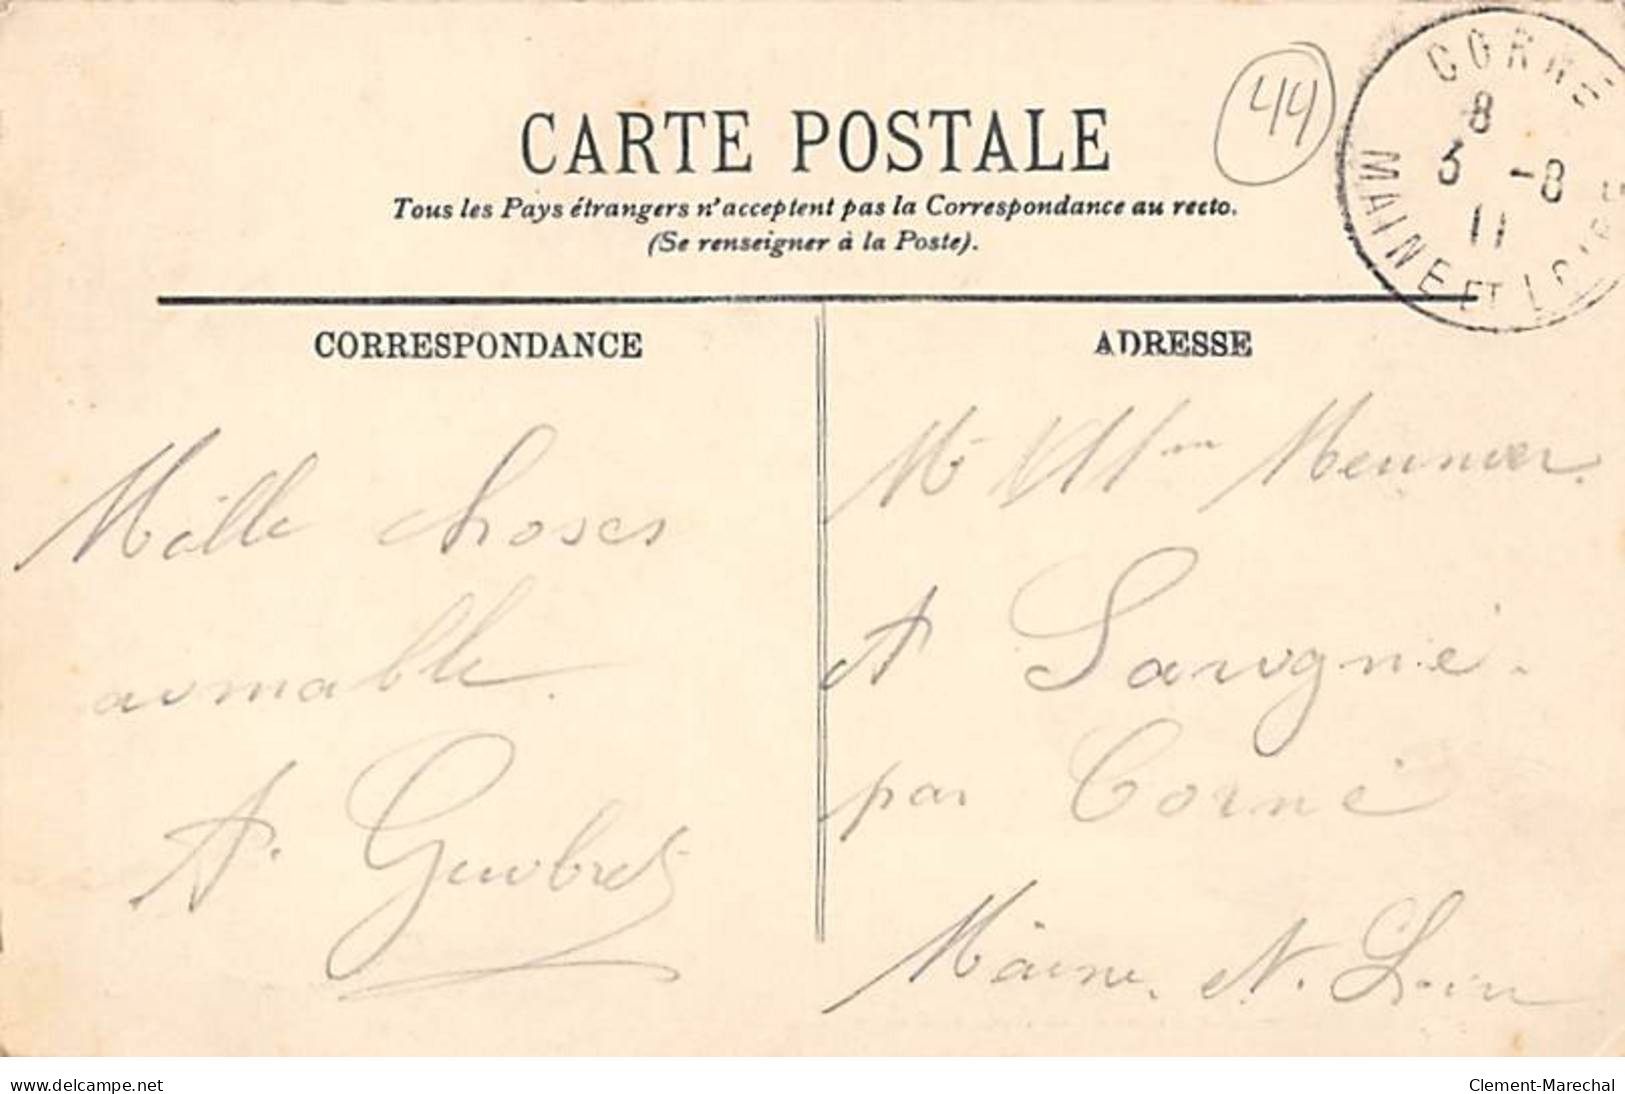 CARTE POSTALE
Tous les Pays étrangers n'acceptent pas la Correspondance au recto.
(Se renseigner à la Poste).
44
CORNÉ
8
3 -8
11
MAINE ET LOIRE
CORRESPONDANCE
Mille choses
aimable.
A.
ADRESSE
Mr Meunier.
A
par Corné
Maine et Loire
www.delcampe.net
Clement-Marechal